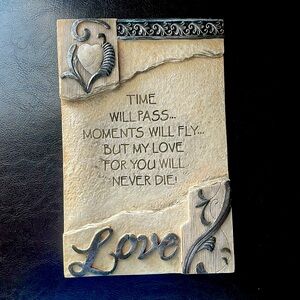 TIME
WILL PASS...
MOMENTS WILL FLY...
BUT MY LOVE
FOR YOU WILL
NEVER DIE!
Love